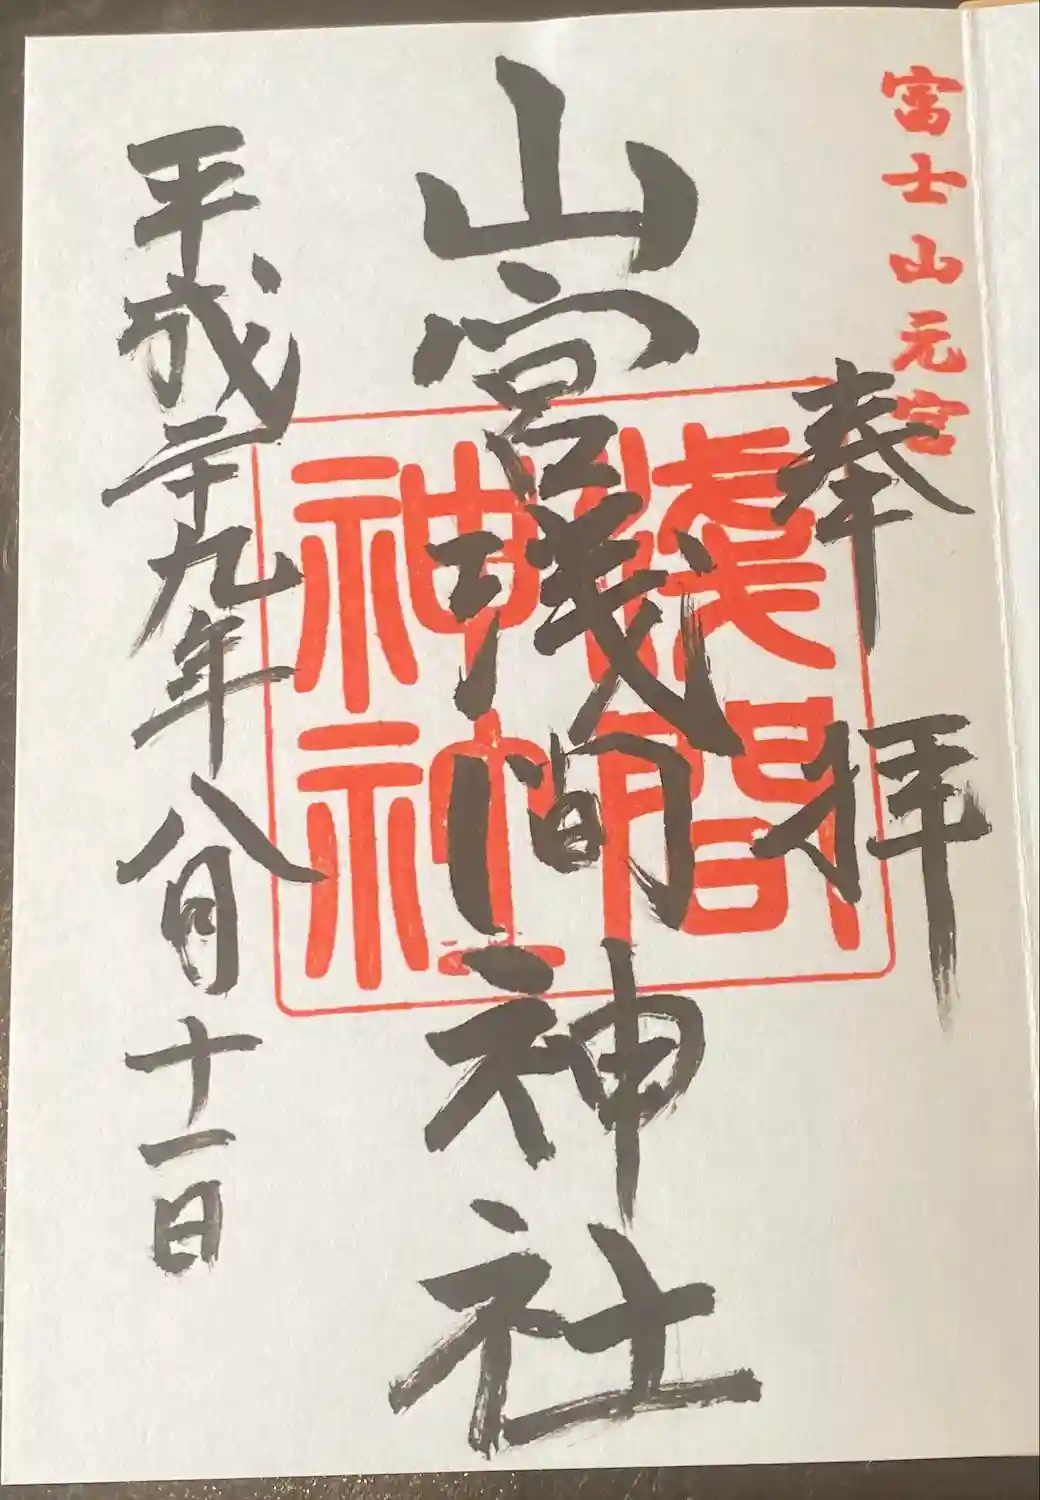 富士山元宮
奉拝
浅間
神社
山宮浅間神社
平成二十九年八月十一日